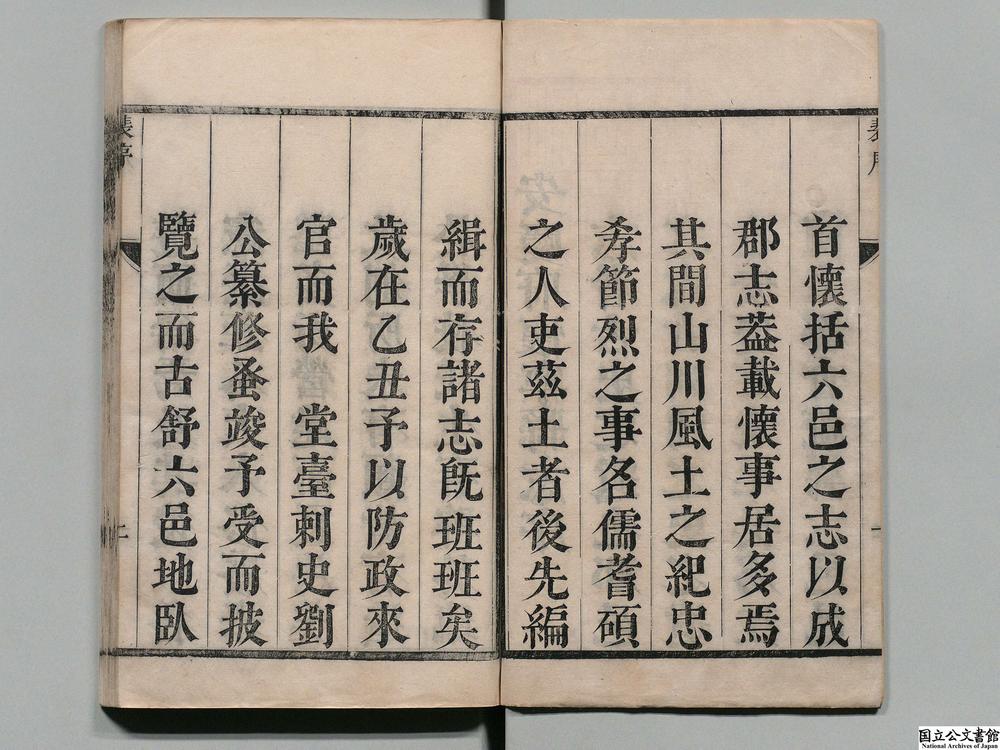 首懷括六邑之志以成
郡志葢載懷事居多焉
其間山川風土之紀忠
孝節烈之事名儒耆碩
之人吏茲土者後先編
緝而存諸志旣班班矣
歲在乙丑予以防政來
官而我 堂臺刺史劉
公纂修蚤竣予受而披
覽之而古舒六邑地臥
国立公文書館
National Archives of Japan